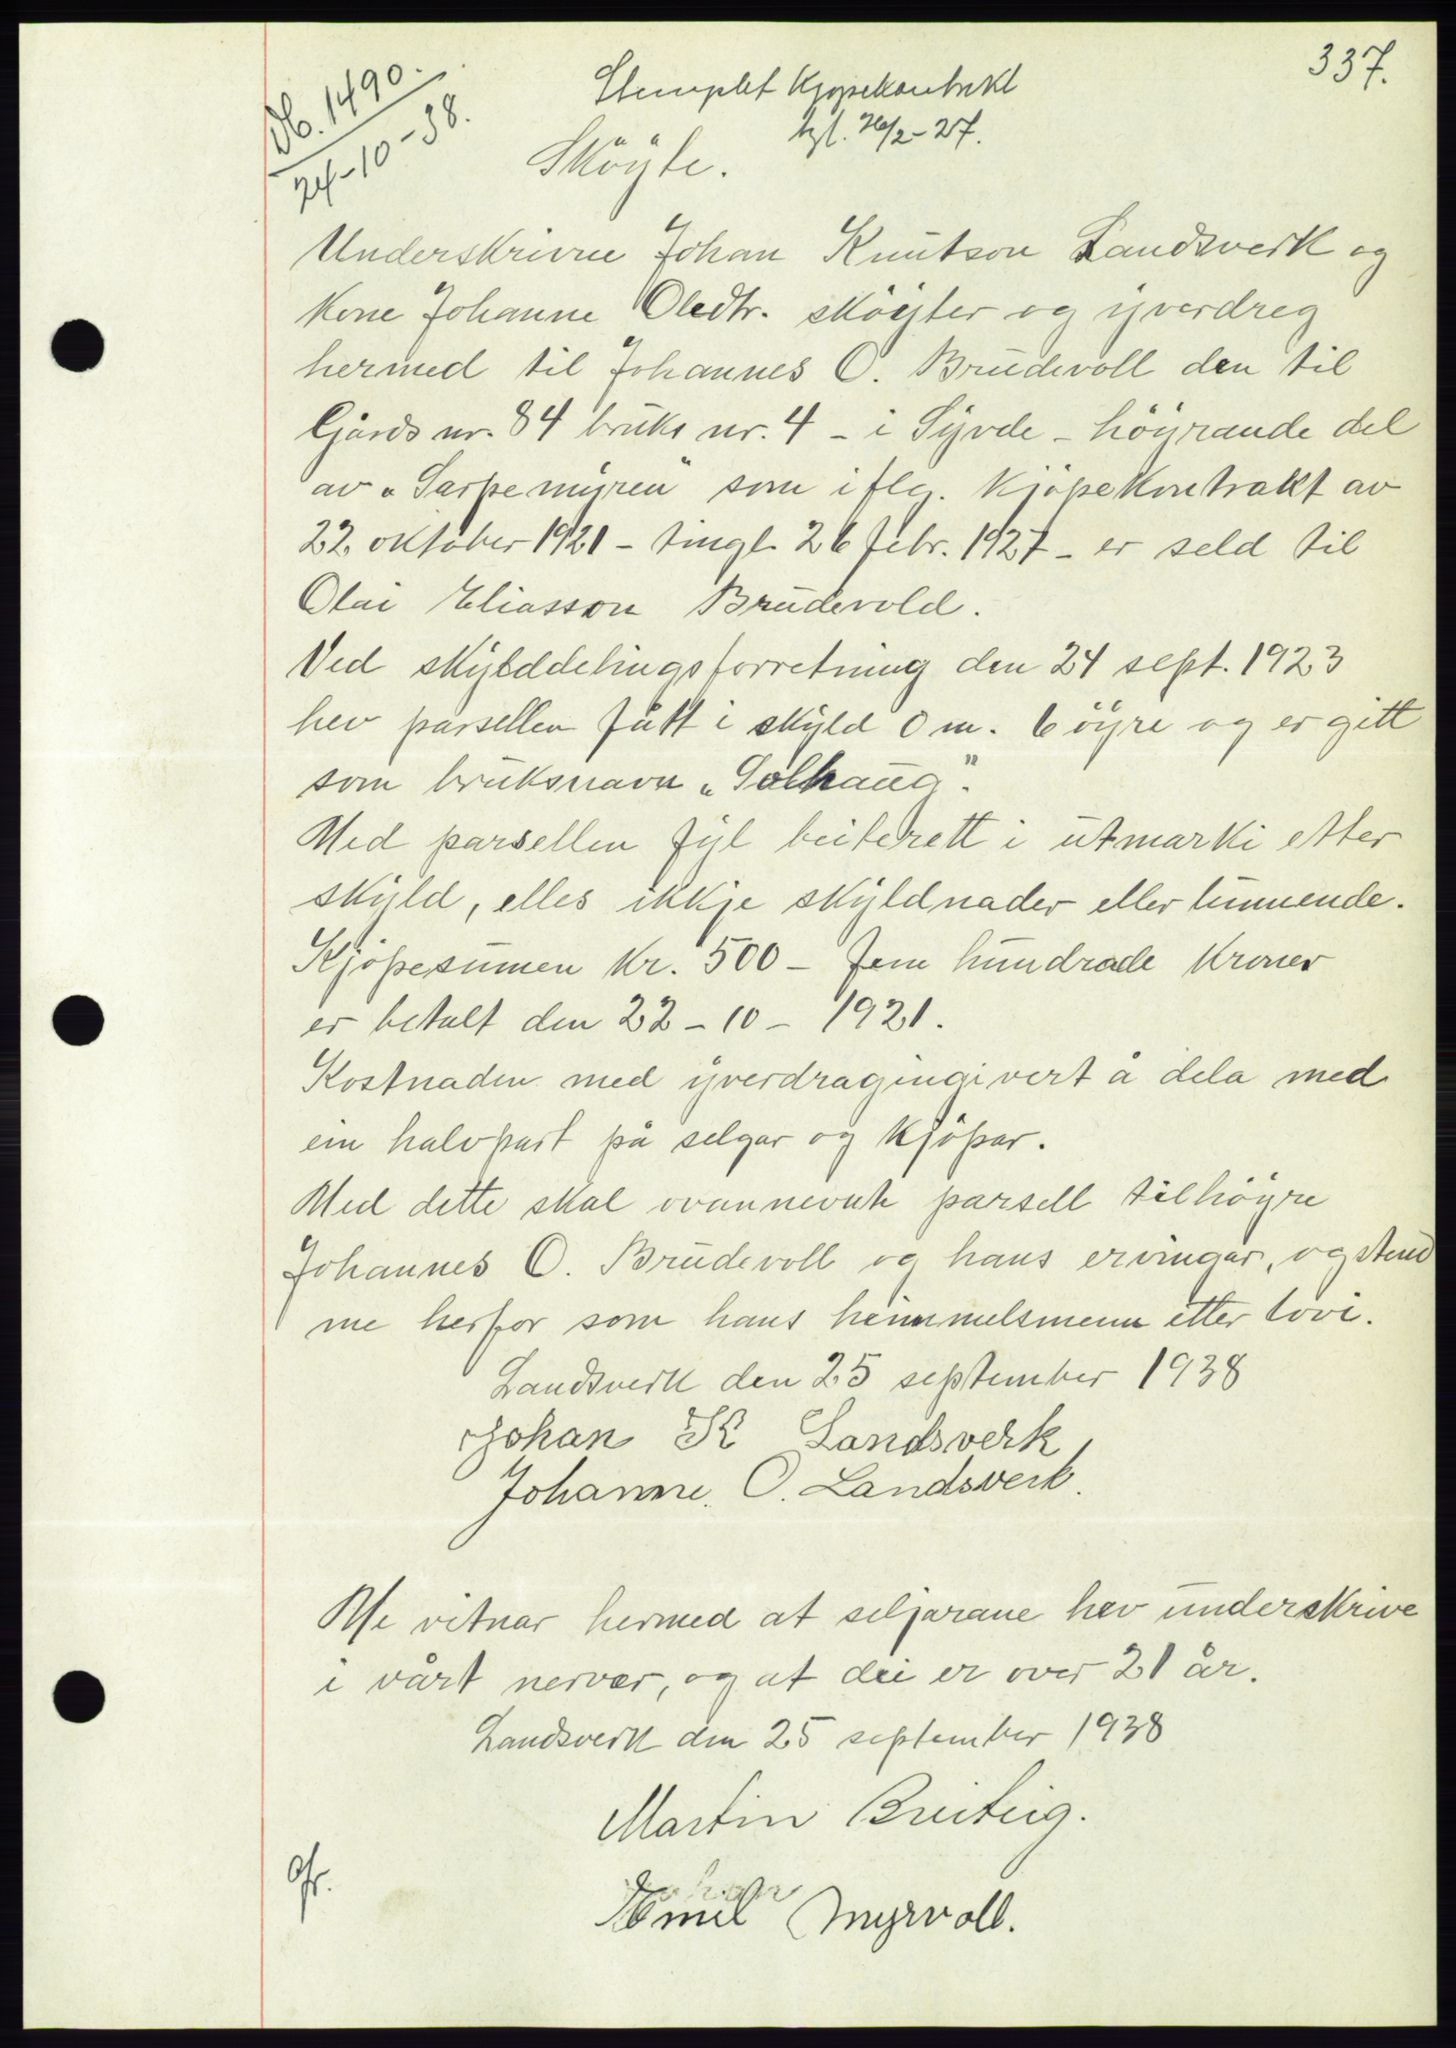 337.
Db. 1490.
24-10-38.
Stemplet Kjøpekontrakt
tgl. 26/2-27.
Sköyte.
Underskrivne Johan Knutson Landsverk og
kone Johanne Oledtr. sköyter og yverdreg
hermed til Johannes O. Brudevoll den til
Gjårds nr. 84 bruks nr. 4 - i Syvde - höyrande del
av "Sarpemyren" som iflg. kjöpekontrakt av
22 oktober 1921 - tingl. 26 febr. 1927 - er seld til
Olai Eliasson Brudevold.
Ved skylddelingsforretning den 24 sept. 1923
hev parsellen fått i skyld 0 m. 6 öyre og er gitt
som bruksnavn "Solhaug".
Med parsellen fyl beiterett i utmarki etter
skyld, elles ikkje skyldnader eller lunnende.
Kjöpesumen kr. 500 - fem hundrade kroner
er betalt den 22 - 10 - 1921.
Kostnaden med yverdragingi vert å dela med
ein halvpart på selgar og kjöpar.
Med dette skal ovannevnte parsell tilhöyre
Johannes O. Brudevoll og hans ervingar, og stend
me herfor som hans heimmelsmenn etter lovi.
Landsverk den 25 september 1938
Johan K Landsverk
Johanne. O. Landsverk.
Me vitnar hermed at seljarane hev underskrive
i vårt nervær, og at dei er over 21 år.
Landsverk den 25 september 1938
Martin Breiteig.
Emil Myrvoll.